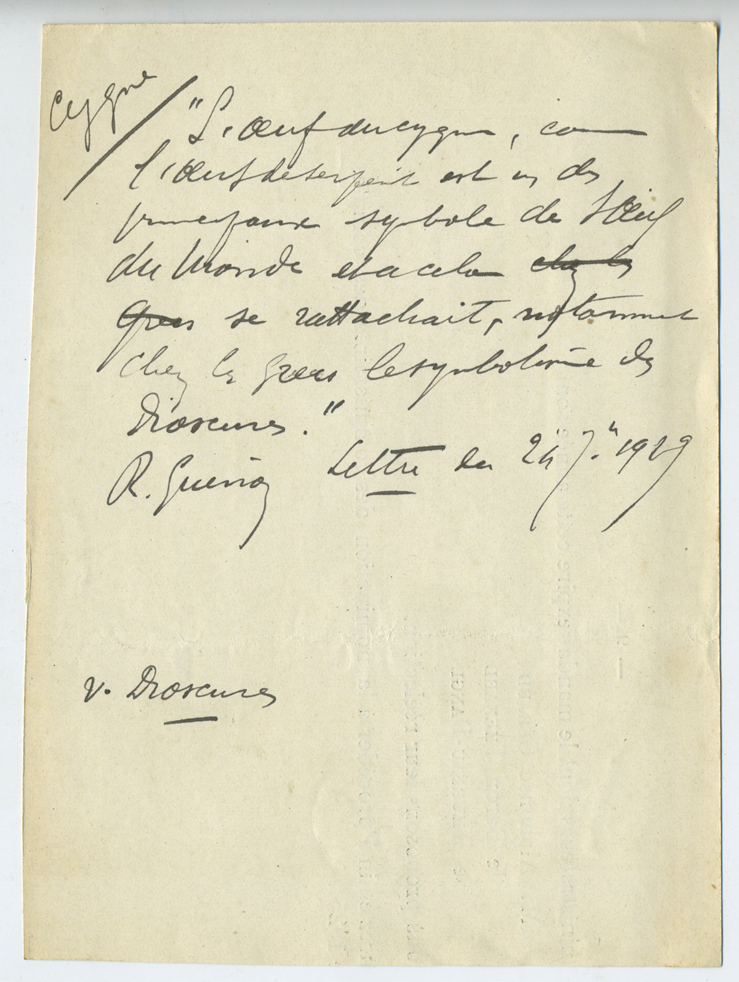 Cygne
"L'œuf du cygne, comme
l'œuf de serpent est un des
principaux symbole de l'Œuf
du Monde et a cela chez les
Grecs se rattachait, notamment
chez les grecs le symbolisme des
Dioscures."
R. Guénon Lettre du 24 7.bre 1929
v. Dioscures